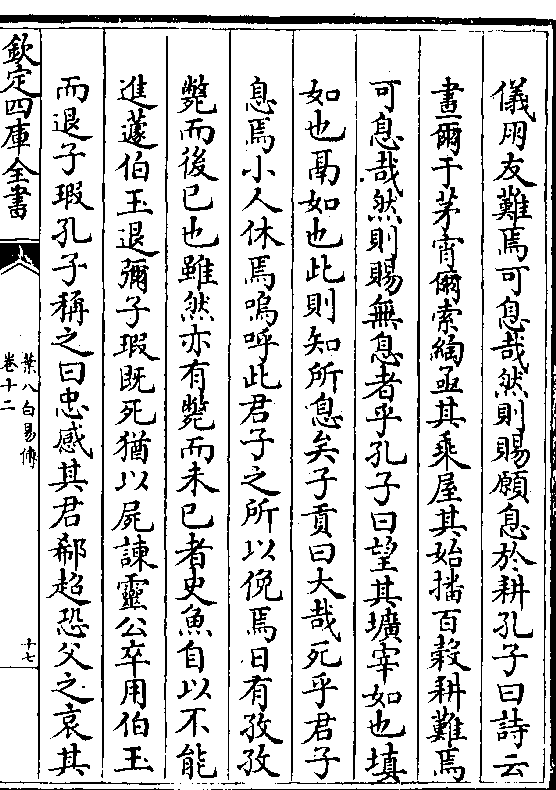 儀朋友難焉可息哉然則賜願息於耕孔子曰詩云
晝爾于茅宵爾索綯亟其乘屋其始播百穀耕難焉
可息哉然則賜無息者乎孔子曰望其壙宰如也填
如也鬲如也此則知所息矣子貢曰大哉死乎君子
息焉小人休焉嗚呼此君子之所以俛焉日有孜孜
斃而後已也雖然亦有斃而未已者史魚自以不能
進蘧伯玉退彌子瑕既死猶以屍諫靈公卒用伯玉
而退子瑕孔子稱之曰忠感其君郗超恐父之哀其
欽定四庫全書
葉八白易傳
卷十二
十七